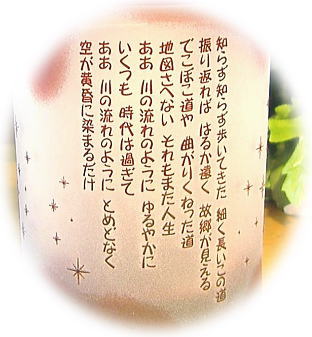 知らず知らず歩いてきた 細く長いこの道
振り返れば はるか遠く 故郷が見える
でこぼこ道や 曲がりくねった道
地図さえない それもまた人生
ああ 川の流れのように ゆるやかに
いくつも 時代は過ぎて
ああ 川の流れのように とめどなく
空が黄昏に染まるだけ